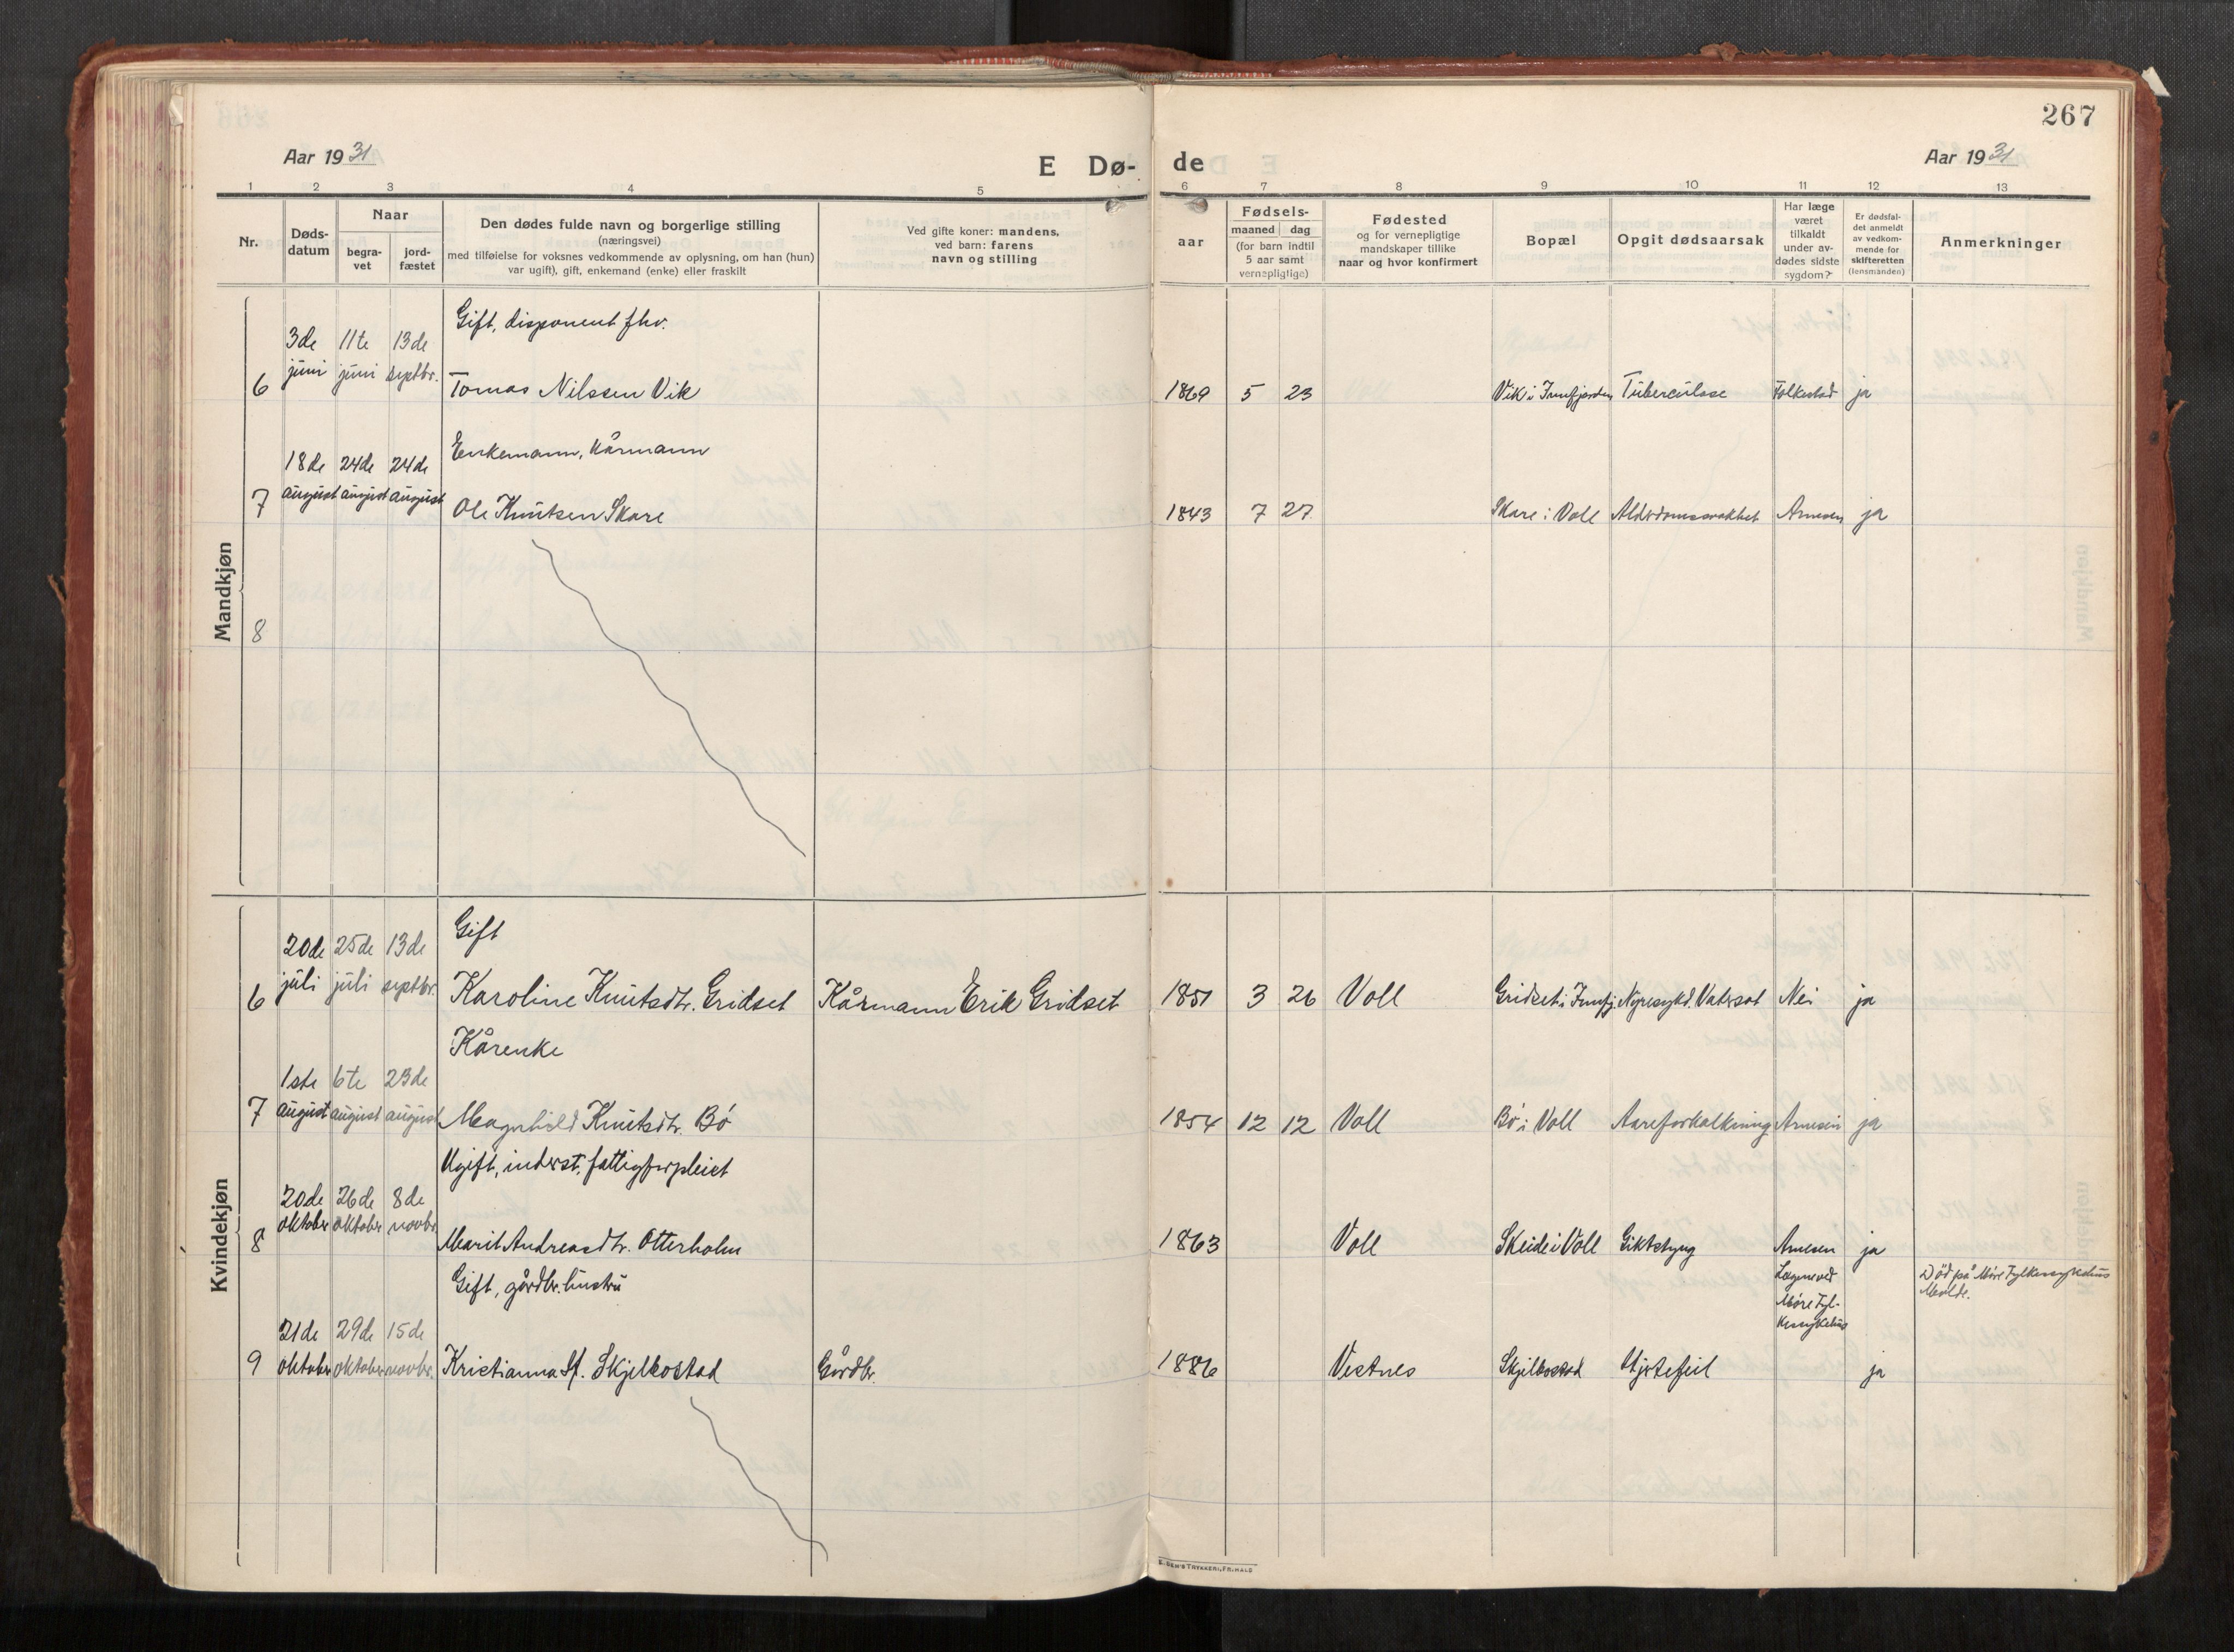 267
Aar 1931
E Dø-
de
Aar 1931
1 2 3 4 5 6 7 8 9 10 11 12 13
Nr.
Døds-
datum
Naar
begra-
vet
jord-
fæstet
Den dødes fulde navn og borgerlige stilling
(næringsvei)
med tilføielse for voksnes vedkommende av oplysning, om han (hun)
var ugift), gift, enkemand (enke) eller fraskilt
Ved gifte koner: mandens,
ved barn: farens
navn og stilling
aar
Fødsels-
maaned dag
(for barn indtil
5 aar samt
vernepligtige)
Fødested
og for vernepligtige
mandskaper tillike
naar og hvor konfirmert
Bopæl
Opgit dødsaarsak
Har læge
været
tilkaldt
under av-
dødes sidste
sygdom?
Er dødsfal-
det anmeldt
av vedkom-
mende for
skifteretten
(lensmanden)
Anmerkninger
Mandkjøn
Gift, disponent fhv.
3de 11te 13de
juni juni septbr.
6 Tomas Nilssen Vik 1869 5 23 Vik i Innfjorden Tuberculose Folkestad ja
Enkemann, kårmann
18de 24de 24de
august august august
7 Ole Knutsen Skare 1843 7 27 Skare i Voll Alderdomssvakhet Arnesen ja
8
Kvindekjøn
Gift
20de 25de 13de
juli juli septbr.
6 Karoline Knutsdtr. Gridset Kårmann Erik Gridset 1851 3 26 Voll Gridset i Innfj. Nyresykd. Vatersot Nei ja
Kårenke
1ste 6te 23de
august august august
7 Magnhild Knutsdtr. Bø 1854 12 12 Voll Bø i Voll Aareforkalkning Arnesen ja
Ugift, inderst, fattigforpleiet
20de 26de 8de
oktober oktober novbr.
8 Marit Andreasdtr. Otterholm 1863 Voll Skeide i Voll Giktstyng Arnesen ja
Gift, gårdbr. hustru
Lægene ved
Møre Fyl-
kessykehus
Død på Møre Fylkessykehus
Molde.
21de 29de 15de
oktober oktober novbr.
9 Kristianna Skjelbostad Gårdbr. 1886 Vestnes Skjelbostad Hjertefeil ja